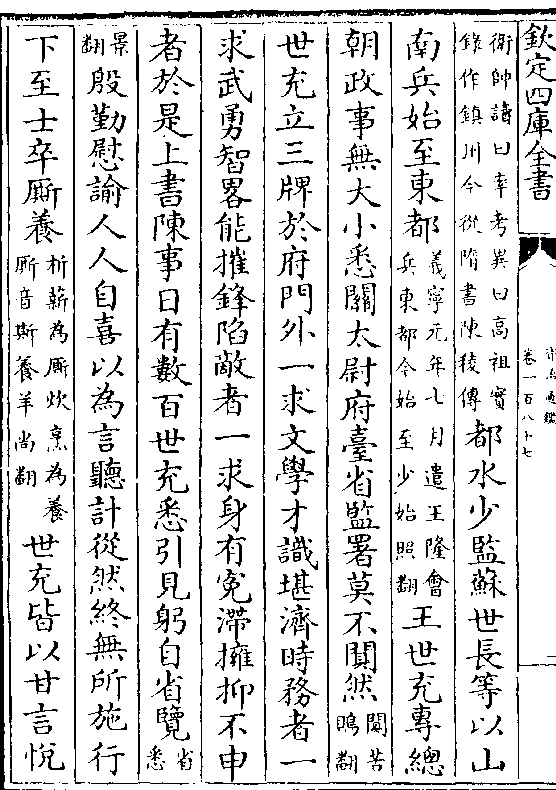 欽定四庫全書
資治通鑑
卷一百八十七
衛帥讀曰率考異曰高祖實
錄作鎮川今從隋書陳稜傳
都水少監蘇世長等以山
南兵始至東都
義寧元年七月遣王隆會
兵東都今始至少始照翻
王世充專總
朝政事無大小悉關太尉府臺省監署莫不闃然
闃苦
鵙翻
世充立三牌於府門外一求文學才識堪濟時務者一
求武勇智畧能摧鋒陷敵者一求身有寃滯擁抑不申
者於是上書陳事日有數百世充悉引見躬自省覽
省
悉
景
翻
殷勤慰諭人人自喜以為言聽計從然終無所施行
下至士卒厮養
析薪為厮炊烹為養
厮音斯養羊尚翻
世充皆以甘言悅